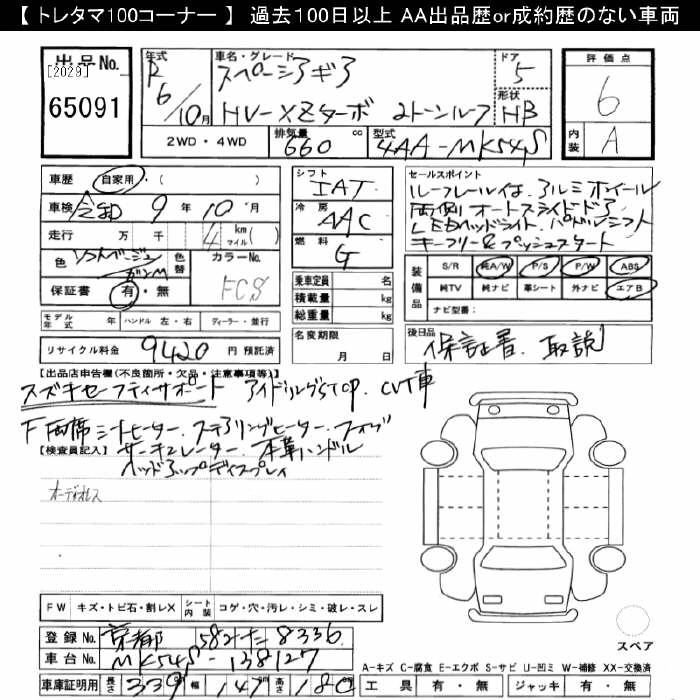 【 トレタマ100コーナー 】 過去100日以上 AA出品歴or成約歴のない車両
出品No.
[2029]
65091
年式
R 6/10月
車名・グレード
スペーシアギア
HV-XZターボ 2トーンルーフ
ドア
5
形状
HB
2WD・4WD
排気量
660 cc
型式
4AA-MK54S
評価点
6
内装
A
車歴 自家用・( )
車検 令和 9年 10月
走行 万 千 4 km マイル( )
色 ソフトベージュ ガンM
色替
カラーNo.
FCS
保証書 有・無
シフト
IAT
冷房
AAC
燃料
G
乗車定員 名
積載量 kg
総重量 kg
セールスポイント
ルーフレール付 アルミホイール
両側オートスライドドア
LEDヘッドライト パドルシフト
キーフリー&プッシュスタート
装備品
S/R 純A/W P/S P/W ABS
純TV 純ナビ 革シート 外ナビ エアB
ナビ型番:
モデル年式 年 ハンドル 左・右 ディーラー・並行
リサイクル料金 9420 円 預託済
名変期限
月 日
後日品
保証書. 取説
【出品店申告欄(不良箇所・欠品・注意事項等)】
スズキセーフティサポート アイドリングSTOP. CVT車
F両席シートヒーター. ステアリングヒーター. フォグ
サーキュレーター. 本革ハンドル
ヘッドアップディスプレイ
【検査員記入】
オーディオレス
FW キズ・トビ石・割レX シート内装 コゲ・穴・汚レ・シミ・破レ・スレ
登録No. 京都 582 た 8336
車台No. MK54S-138127
車庫証明用 長さ 339 幅 147 高さ 180
スペア
A-キズ C-腐食 E-エクボ S-サビ U-凹ミ W-補修 XX-交換済
工具 有・無 ジャッキ 有・無